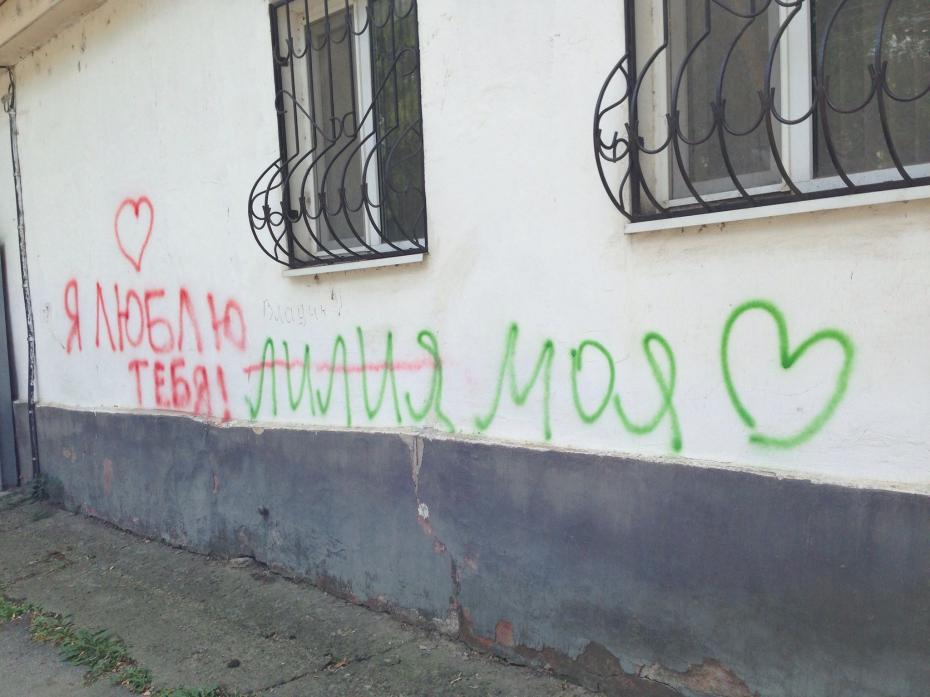 Я ЛЮБЛЮ
ТЕБЯ!
Владик
ЛИЛИЯ МОЯ